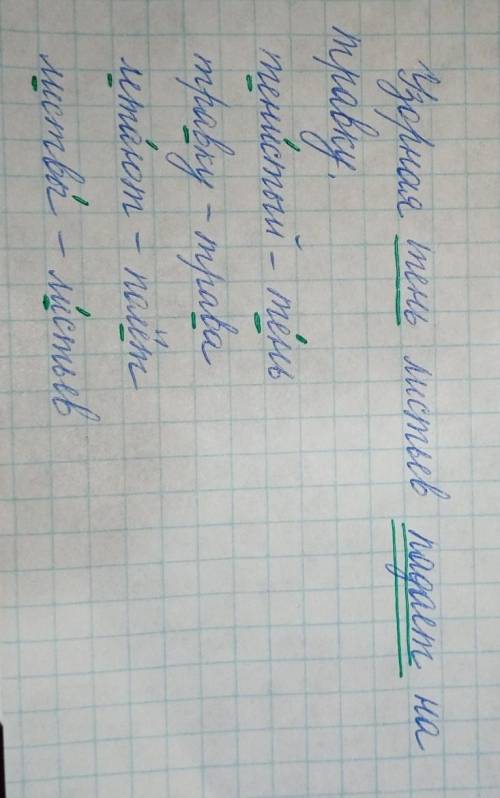 Узорная тень листьев падает на
травку.
тени́стый – те́нь
травку – трава
лета́ют – полёт
листвы́ – ли́стьев